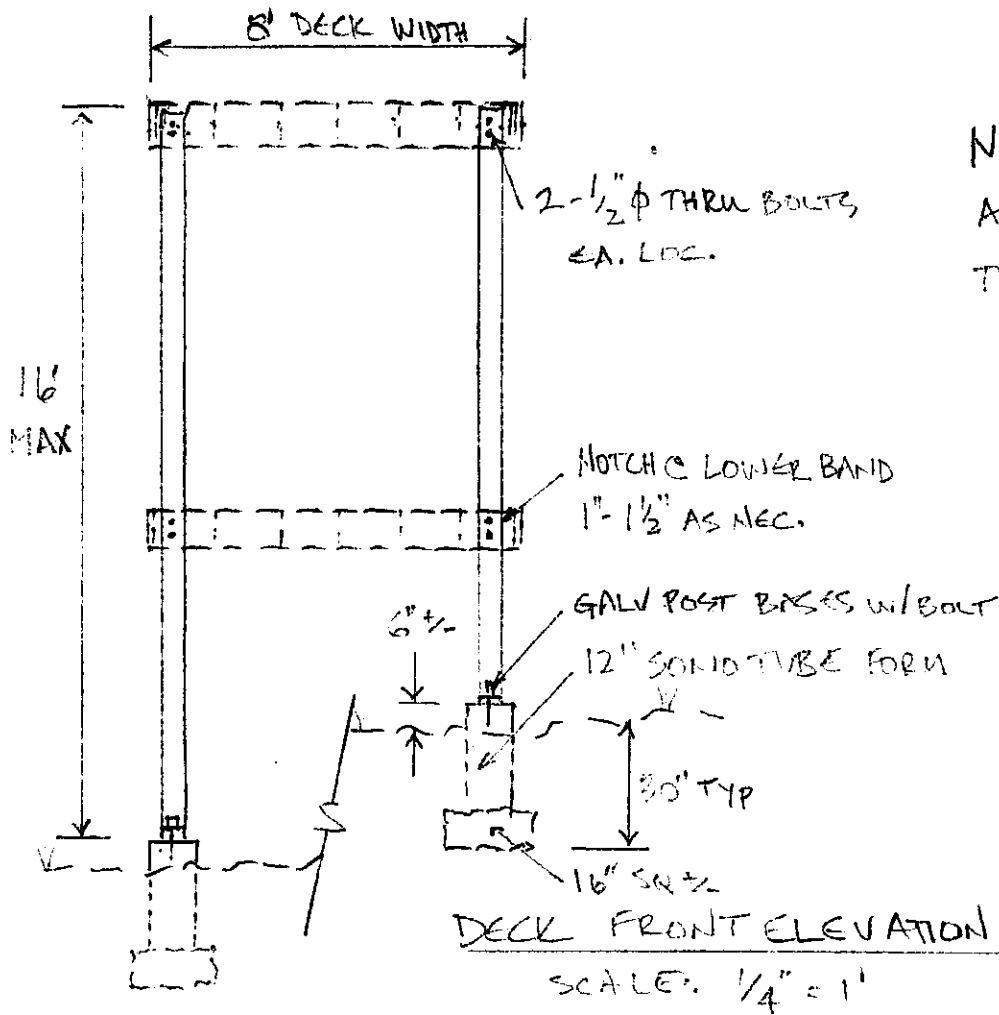 8' DECK WIDTH
2-1/2" ϕ THRU BOLTS
EA. LOC.
N
A
T
16'
MAX
NOTCH @ LOWER BAND
1"-1 1/2" AS NEC.
GALV POST BASES W/BOLT
6" +/-
12" SONOTUBE FORM
30" TYP
16" SQ +/-
DECK FRONT ELEVATION
SCALE: 1/4" = 1'